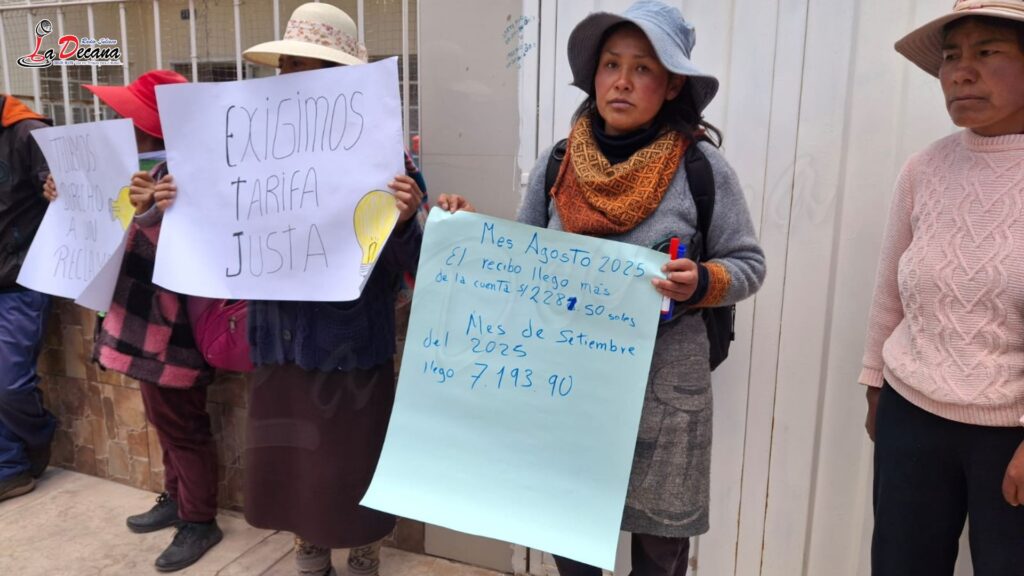 Radio Juliaca
La Decana
TENEMOS
DERECHO
A UN
RECLAMO
EXIGIMOS
TARIFA
JUSTA
E
T
J
Mes Agosto 2025
El recibo llego más
de la cuenta S/2281.50 soles
Mes de Setiembre
del 2025
llego 7.193.90